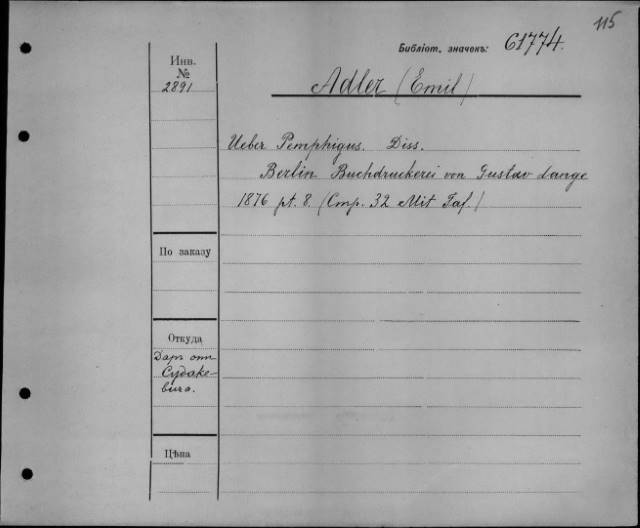 115
Библіот. значекъ: 61774.
Инв.
№
2891
Adler (Emil)
Ueber Pemphigus. Diss.
Berlin Buchdruckerei von Gustav Lange
1876 pt. 8. (Стр. 32 Mit Taf.)
По заказу
Откуда
Даръ отъ
Судаке-
вича.
Цѣна